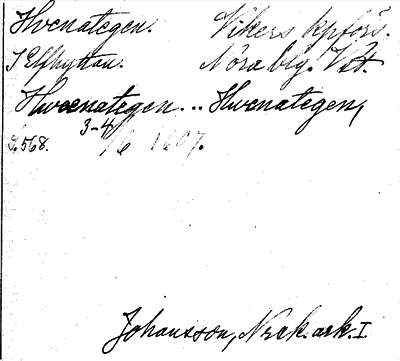 Hvenategen. Vikers kpförs.
I Elfhyttan. Nora blg. Vstm.
Hwenategen .. Hwenategen,
s. 568. 3-4/6 1607.
Johansson, Norak. ark. I